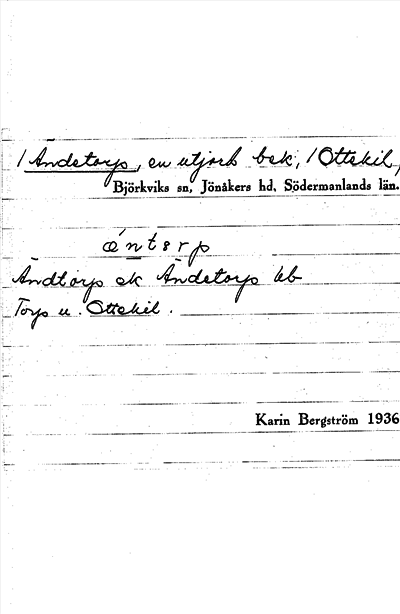 / Ändetorp, en utjord bek., / Ottekil,
Björkviks sn, Jönåkers hd, Södermanlands län.
ǽntɜrp
Ändtorp ek Ändetorp kb
Torp u. Ottekil.
Karin Bergström 1936